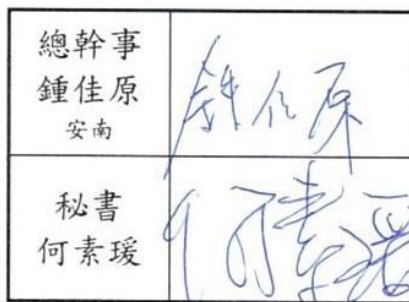 總幹事
鍾佳原
安南
鍾佳原
秘書
何素瑗
何素瑗